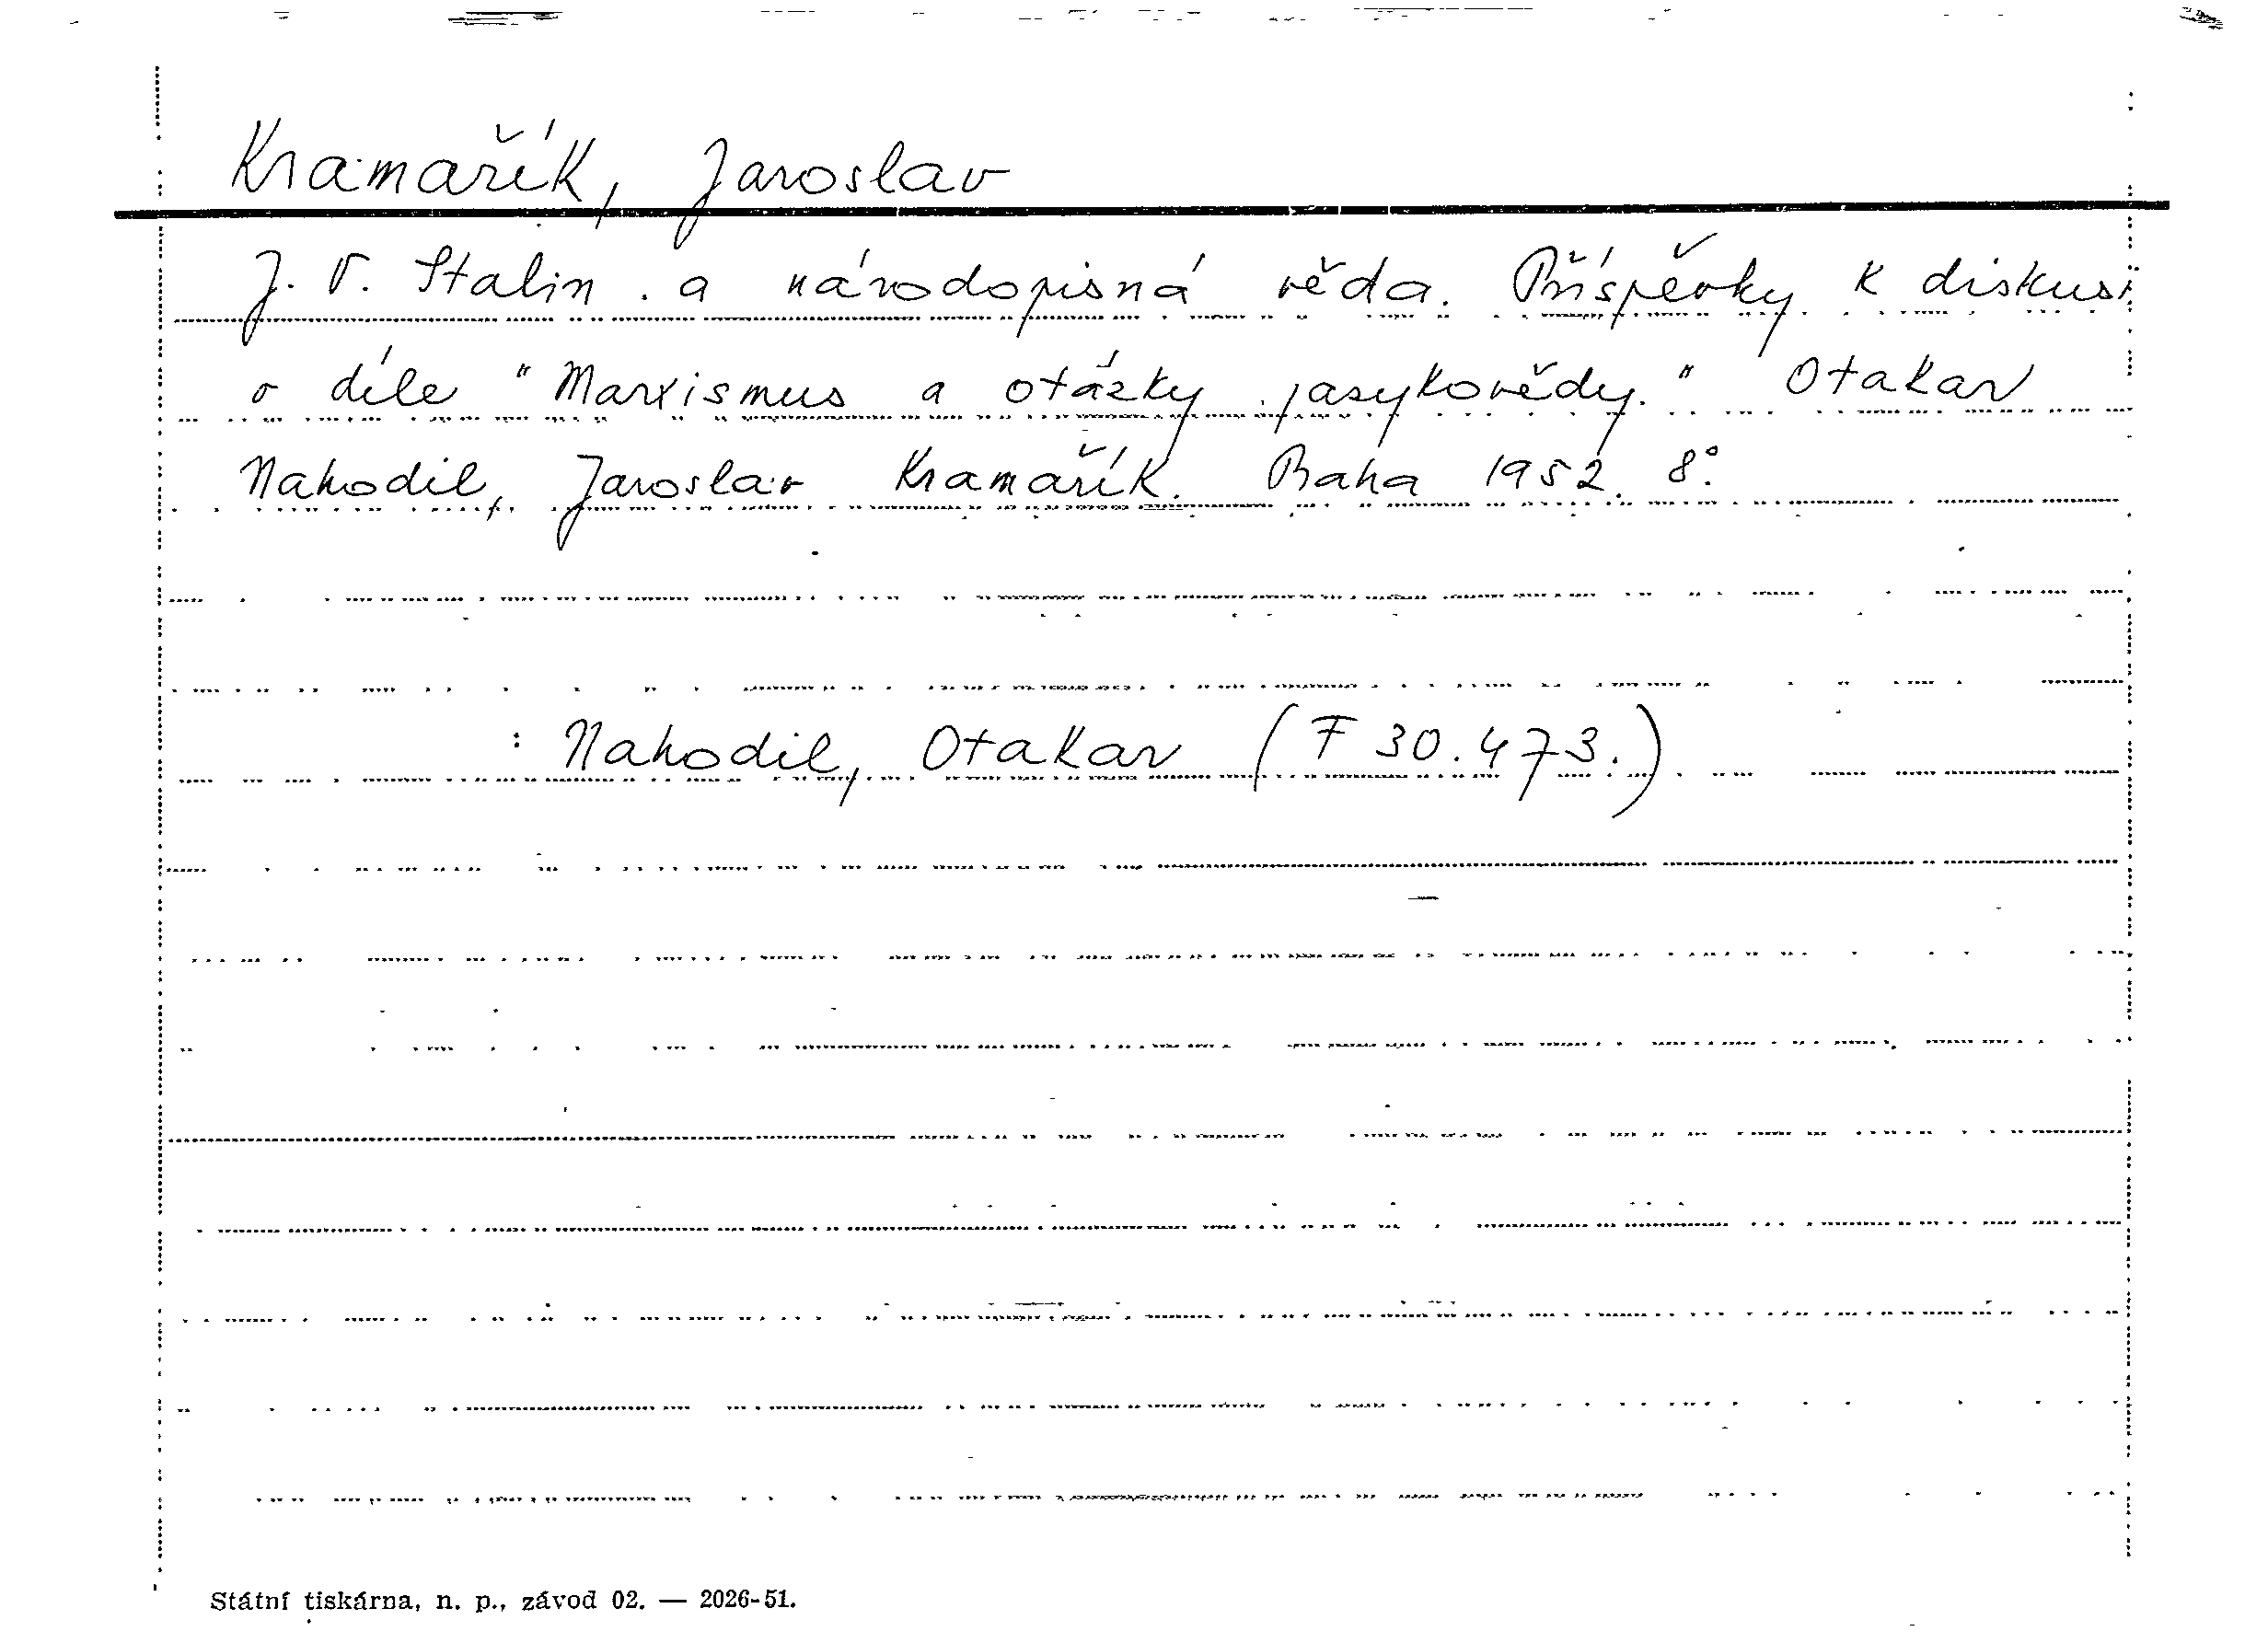 Kramařík, Jaroslav
J. V. Stalin a národopisná věda. Příspěvky k diskusi
o díle "Marxismus a otázky jasykovědy." Otakar
Nahodil, Jaroslav Kramařík. Praha 1952. 8°.
: Nahodil, Otakar (F 30.473.)
Státní tiskárna, n. p., závod 02. — 2026-51.